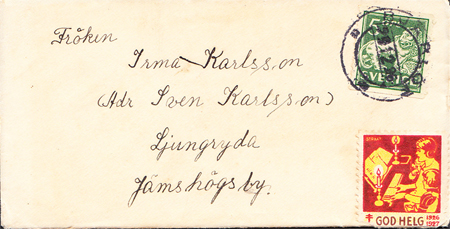 Fröken
Irma Karlsson
(Adr Sven Karlsson)
Ljungryda
Jämshögsby.
SVERIGE
GOD HELG 1926
1927